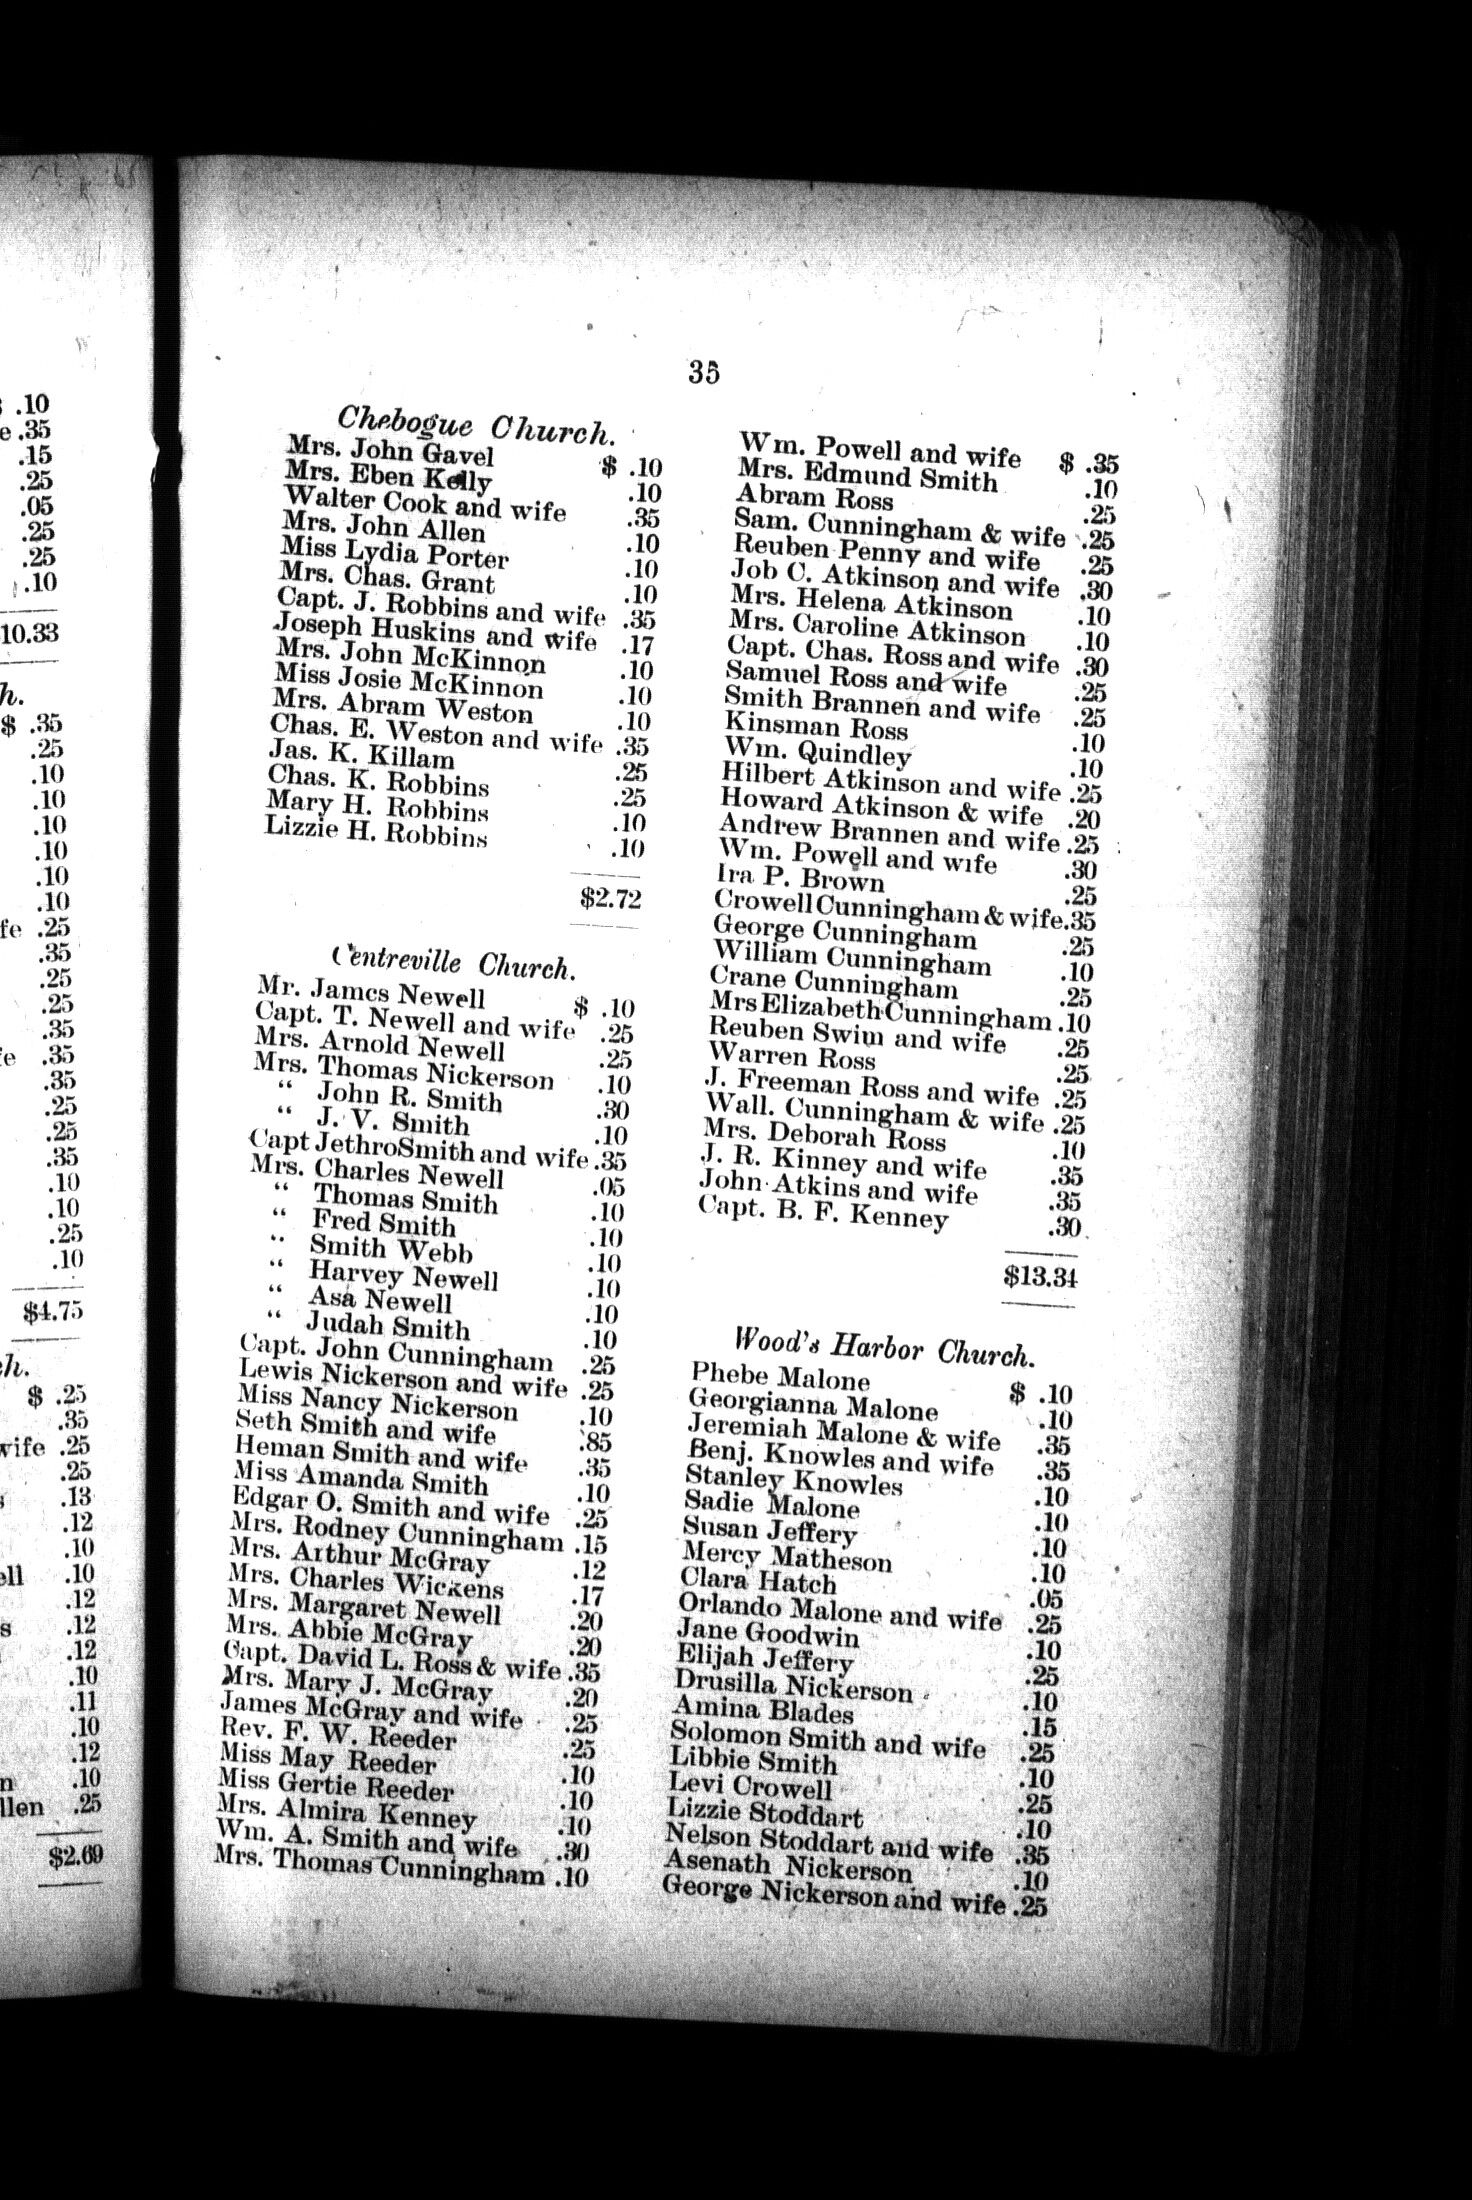 .10
e .35
.15
.25
.05
.25
.25
.10
10.33
h.
$ .35
.25
.10
.10
.10
.10
.10
.10
fe .25
.35
.25
.25
.35
fe .35
.35
.25
.25
.35
.10
.10
.25
.10
$4.75
h.
$ .25
.35
wife .25
.25
.13
.12
.10
ell .10
.12
s .12
.12
.10
.11
.10
.12
n .10
llen .25
$2.69
35
Chebogue Church.
Mrs. John Gavel $ .10
Mrs. Eben Kelly .10
Walter Cook and wife .35
Mrs. John Allen .10
Miss Lydia Porter .10
Mrs. Chas. Grant .10
Capt. J. Robbins and wife .35
Joseph Huskins and wife .17
Mrs. John McKinnon .10
Miss Josie McKinnon .10
Mrs. Abram Weston .10
Chas. E. Weston and wife .35
Jas. K. Killam .25
Chas. K. Robbins .25
Mary H. Robbins .10
Lizzie H. Robbins .10
$2.72
Centreville Church.
Mr. James Newell $ .10
Capt. T. Newell and wife .25
Mrs. Arnold Newell .25
Mrs. Thomas Nickerson .10
“ John R. Smith .30
“ J. V. Smith .10
Capt Jethro Smith and wife .35
Mrs. Charles Newell .05
“ Thomas Smith .10
“ Fred Smith .10
“ Smith Webb .10
“ Harvey Newell .10
“ Asa Newell .10
“ Judah Smith .10
Capt. John Cunningham .25
Lewis Nickerson and wife .25
Miss Nancy Nickerson .10
Seth Smith and wife .85
Heman Smith and wife .35
Miss Amanda Smith .10
Edgar O. Smith and wife .25
Mrs. Rodney Cunningham .15
Mrs. Arthur McGray .12
Mrs. Charles Wickens .17
Mrs. Margaret Newell .20
Mrs. Abbie McGray .20
Capt. David L. Ross & wife .35
Mrs. Mary J. McGray .20
James McGray and wife .25
Rev. F. W. Reeder .25
Miss May Reeder .10
Miss Gertie Reeder .10
Mrs. Almira Kenney .10
Wm. A. Smith and wife .30
Mrs. Thomas Cunningham .10
Wm. Powell and wife $ .35
Mrs. Edmund Smith .10
Abram Ross .25
Sam. Cunningham & wife .25
Reuben Penny and wife .25
Job C. Atkinson and wife .30
Mrs. Helena Atkinson .10
Mrs. Caroline Atkinson .10
Capt. Chas. Ross and wife .30
Samuel Ross and wife .25
Smith Brannen and wife .25
Kinsman Ross .10
Wm. Quindley .10
Hilbert Atkinson and wife .25
Howard Atkinson & wife .20
Andrew Brannen and wife .25
Wm. Powell and wife .30
Ira P. Brown .25
Crowell Cunningham & wife .35
George Cunningham .25
William Cunningham .10
Crane Cunningham .25
Mrs Elizabeth Cunningham .10
Reuben Swim and wife .25
Warren Ross .25
J. Freeman Ross and wife .25
Wall. Cunningham & wife .25
Mrs. Deborah Ross .10
J. R. Kinney and wife .35
John Atkins and wife .35
Capt. B. F. Kenney .30
$13.34
Wood's Harbor Church.
Phebe Malone $ .10
Georgianna Malone .10
Jeremiah Malone & wife .35
Benj. Knowles and wife .35
Stanley Knowles .10
Sadie Malone .10
Susan Jeffery .10
Mercy Matheson .10
Clara Hatch .05
Orlando Malone and wife .25
Jane Goodwin .10
Elijah Jeffery .25
Drusilla Nickerson .10
Amina Blades .15
Solomon Smith and wife .25
Libbie Smith .10
Levi Crowell .25
Lizzie Stoddart .10
Nelson Stoddart and wife .35
Asenath Nickerson .10
George Nickerson and wife .25